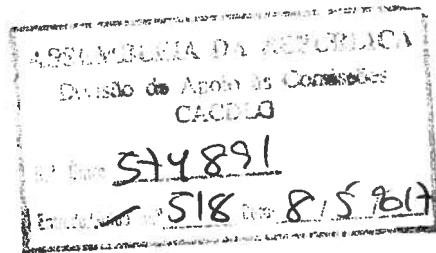 ASSEMBLEIA DA REPÚBLICA
Divisão de Apoio às Comissões
CACDLG
N.º Único 574891
Entrada/ n.º 518 Data 8/5/2017